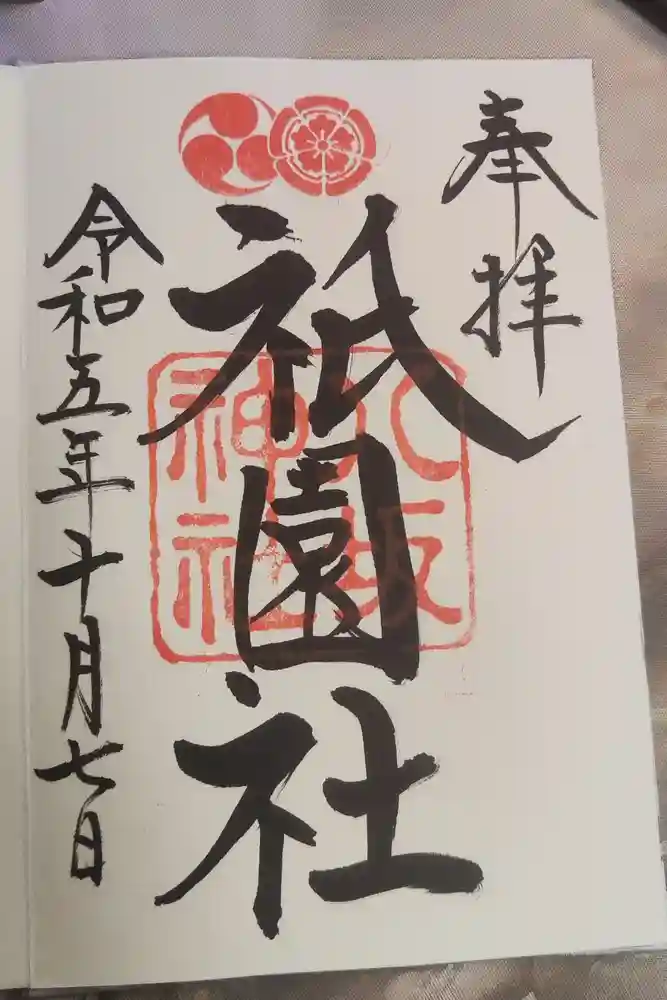 奉拝
祇園社
八坂
神社
令和五年十月七日